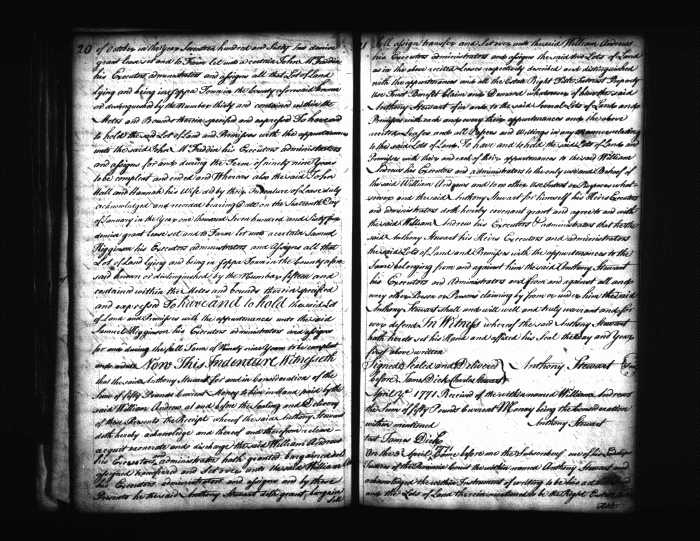 20
of October in the Year Seventeen hundred and Sixty two demise
grant lease set and to Farm let unto a certain John McFadin
his Executors administrators and assigns all that Lot of Land
lying and being in Joppa Town in the County aforesaid known
or distinguished by the Number thirty and contained within the
Metes and Bounds therein specified and expressed To have and
to hold the said Lot of Land and Premisses with the appurtenances
unto the said John McFadin his Executors administrators
and assigns for and during the Term of ninety nine Years
to be compleat and ended and Whereas also the said John
Hall and Hannah his Wife did by their Indenture of Lease duly
acknowledged and recorded bearing Date on the Sixteenth Day
of January in the Year one thousand Seven hundred and Sixty
demise grant lease set and to Farm let unto a certain Samuel
Higginson his Executors administrators and assigns all that
Lot of Land lying and being in Joppa Town in the County afore
said known or distinguished by the Number fifteen and
contained within the Metes and bounds therein specified
and expressed To have and to hold the said Lot
of Land and Premisses with the appurtenances unto the said
Samuel Higginson his Executors administrators and assigns
for and during the full Term of Ninety nine Years to be compleat
and ended Now This Indenture Witnesseth
that the said Anthony Stewart for and in consideration of the
Sum of fifty Pounds Current Money to him in Hand paid by the
said William Andrews at and before the Sealing and Delivery
of these Presents the Receipt whereof the said Anthony Stewart
doth hereby acknowledge and thereof and therefrom release
acquit exonerate and discharge the said William Andrews
his Executors administrators hath granted bargained sold
assigned transfered and Set over unto the said William
his Executors administrators and assigns and by these
Presents he the said Anthony Stewart doth grant bargain
Sell
Sell assign transfer and Set over unto the said William Andrews
his Executors administrators and assigns the said two Lots of Land
as in the above recited Leases respectively demised and distinguished
with the appurtenances and all the Estate Right Title Interest Property
use Trust Benefit Claim and Demand whatsoever of him the said
Anthony Stewart of in and to the said Several Lots of Land and
Premisses with each and every their appurtenances and the above
recited Leases and all Papers and Writings in any manner relating
to the said Lots of Land To have and to hold the said Lots of Land and
Premisses with their and each of their appurtenances to the said William
Andrews his Executors and administrators to the only use and Behoof of
the said William Andrews and to no other use Intent or Purpose what-
soever and the said Anthony Stewart for himself his Heirs Executors
and administrators doth hereby covenant grant and agree to and with
the said William Andrews his Executors & administrators that he the
said Anthony Stewart his Heirs Executors and administrators
the said Lots of Land and Premisses with the appurtenances to the
Same belonging from and against him the said Anthony Stewart
his Executors and administrators and from and against all and
every other Person or Persons claiming by from or under him the said
Anthony Stewart shall and will well and truly warrant and for
ever defend In Witness whereof the said Anthony Stewart
hath hereto set his Name and affixed his Seal the Day and Year
first above written
Signed Sealed and Delivered } Anthony Stewart
before James Dick Charles Stewart
April 3d 1771 Received of the within named William Andrews
the Sum of fifty Pounds Current Money being the Consideration
within mentioned Anthony Stewart
test James Dick
On the 3 April came before me the Subscriber one of his Lordships
Justices of the Provincial Court the within named Anthony Stewart and
acknowledged the within Instrument of writing to be his act and deed
and the Lots of Land therein mentioned to be the Right Estate